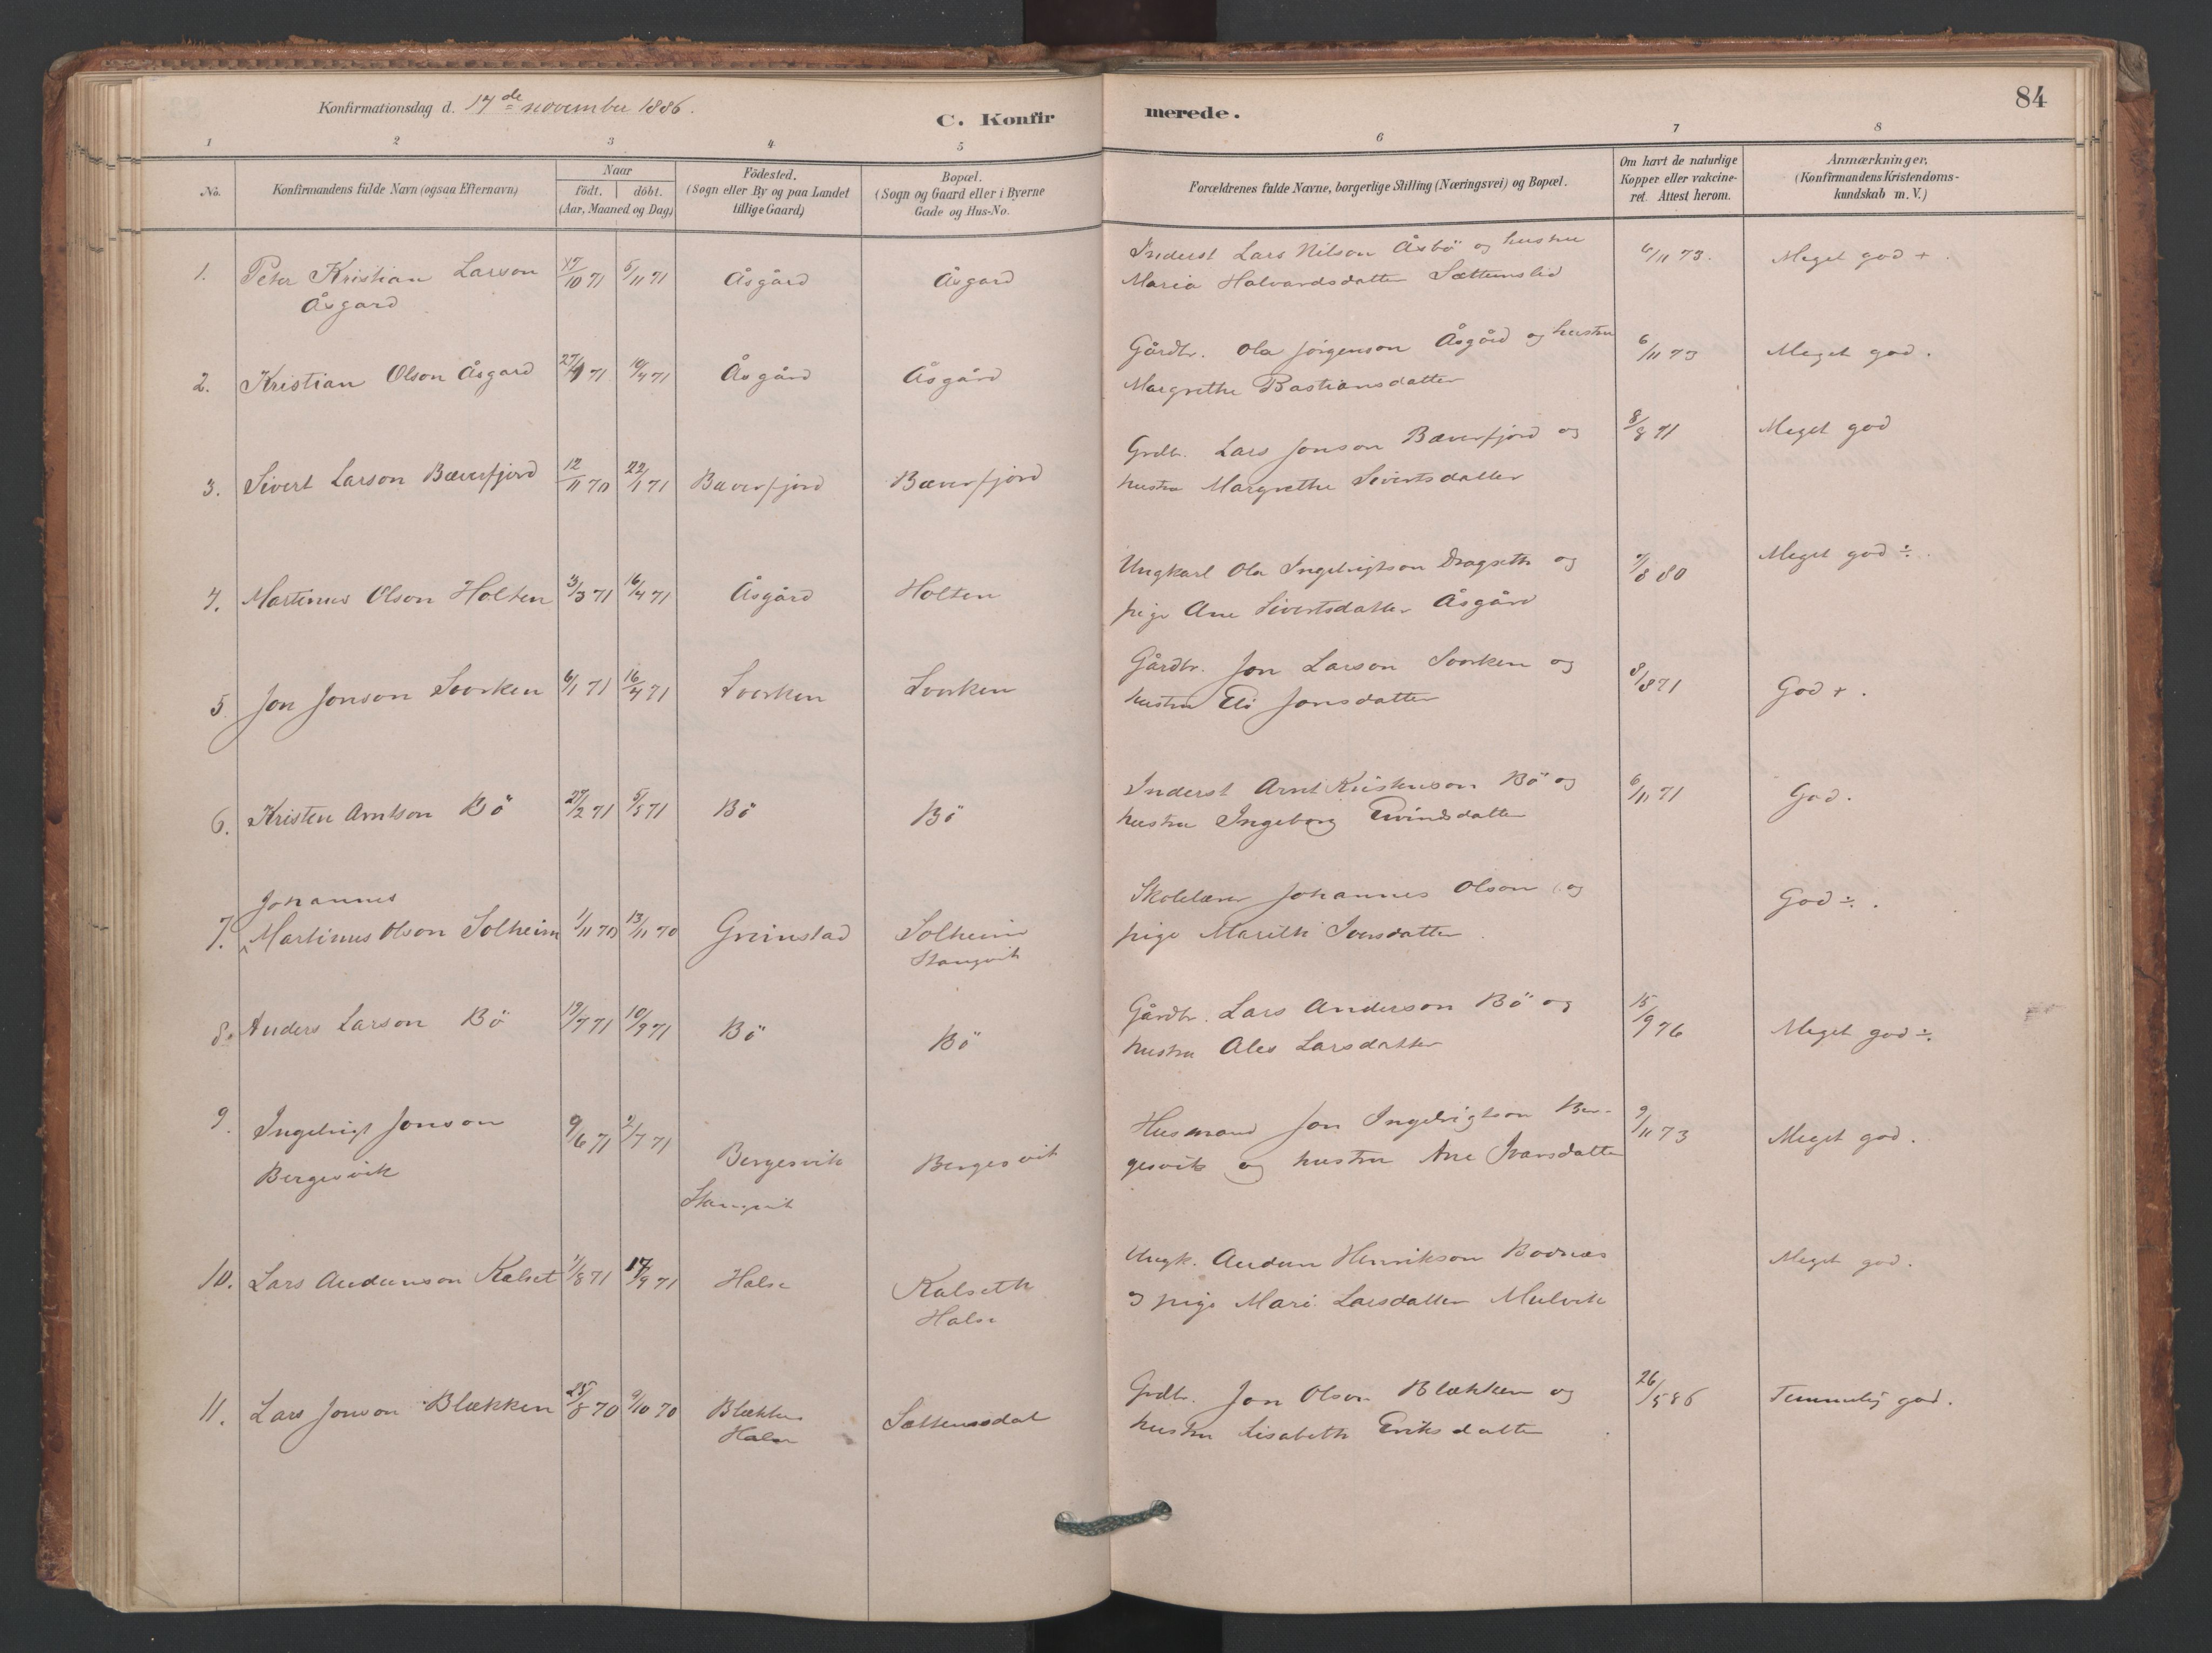 Konfirmationsdag d. 14de november 1886.
C. Konfirmerede.
84
1 2 3 4 5 6 7 8
No.
Konfirmandens fulde Navn (ogsaa Efternavn)
Naar
födt. döbt.
(Aar, Maaned og Dag)
Födested.
(Sogn eller By og paa Landet
tillige Gaard)
Bopæl.
(Sogn og Gaard eller i Byerne
Gade og Hus-No.
Forældrenes fulde Navne, borgerlige Stilling (Næringsvei) og Bopæl.
Om havt de naturlige
Kopper eller vakcine-
ret. Attest herom.
Anmærkninger.
(Konfirmandens Kristendoms-
kundskab m. V.)
1. Peter Kristian Larson 17/10 71 5/11 71 Åsgård Åsgard Inderst Lars Nilson Åsbö og hustru 6/11 73. Meget god +.
Åsgard Maria Halvardsdatter Sættemslid
2. Kristian Olson Åsgard 27/1 71 10/4 71 Åsgård Åsgård Gårdbr. Ola Jörgenson Åsgård og hustru 6/11 73 Meget god.
Margrethe Bastiansdatter
3. Sivert Larson Bæverfjord 12/11 70 22/1 71 Bæverfjord Bæverfjord Grdbr. Lars Jonson Bæverfjord og 8/8 71 Meget god
hustru Margrethe Sivertsdatter
4. Martinus Olson Holten 3/3 71 16/4 71 Åsgård Holten Ungkarl Ola Ingebrigtson Dragseth og /8 80 Meget god ÷.
pige Ane Sivertsdatter Åsgård
5. Jon Jonson Svorken 6/1 71 16/4 71 Svorken Svorken Gårdbr. Jon Larson Svorken og 8/8 71 God +.
hustru Eli Jonsdatter
6. Kristen Arntson Bö 27/2 71 5/3 71 Bö Bö Inderst Arnt Kristenson Bö og 6/11 71 God.
hustru Ingeborg Eivindsdatter
Johannes
7. Martinus Olson Solheim 1/11 70 13/11 70 Grimstad Solheim Skolelærer Johannes Olson og God ÷.
Stangvik pige Marith Iversdatter.
8. Anders Larson Bö 19/7 71 10/9 71 Bö Bö Gårdbr. Lars Anderson Bö og 15/9 76 Meget god ÷.
hustru Ales Larsdatter
9. Ingebrigt Jonson 9/6 71 2/7 71 Bergesvik Bergesvik Husmand Jon Ingebrigtson Ber- 9/11 73 Meget god.
Bergesvik Stangvik gesvik og hustru Ane Ivarsdatter
10. Lars Audunson Kalset 1/8 71 17/9 71 Halse Kalseth Ungk. Audun Henrikson Bodnæs Meget god.
Halse og pige Mari Larsdatter Mulvik
11. Lars Jonson Blækken 25/8 70 9/10 70 Blækken Sættemsdal Grdbr. Jon Olson Blækken og 26/5 86 Temmelig god.
Halse hustru Lisabeth Eriksdatter